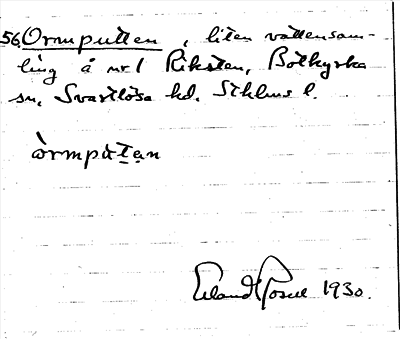 56. Ormputten, liten vattensam-
ling å nr 1 Riksten, Botkyrka
sn, Svartlösa hd. Sthlms l.
òrmpùtan
Erland Rosell 1930.